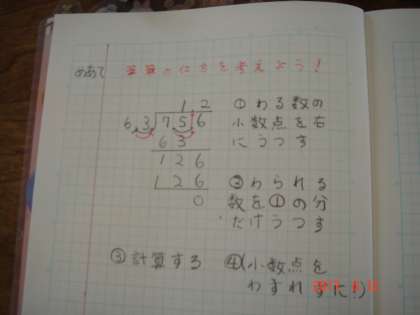 めあて 筆算のしかたを考えよう!
12
6.3)75.6
63
126
126
0
①わる数の
小数点を右
にうつす
②わられる
数を①の分
だけうつす
③計算する
④(小数点を
わすれずに!)